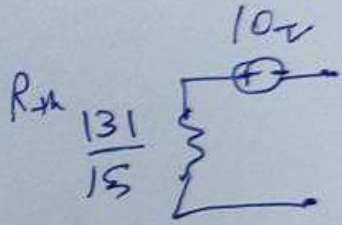 10v
R_th 131/15
+ -